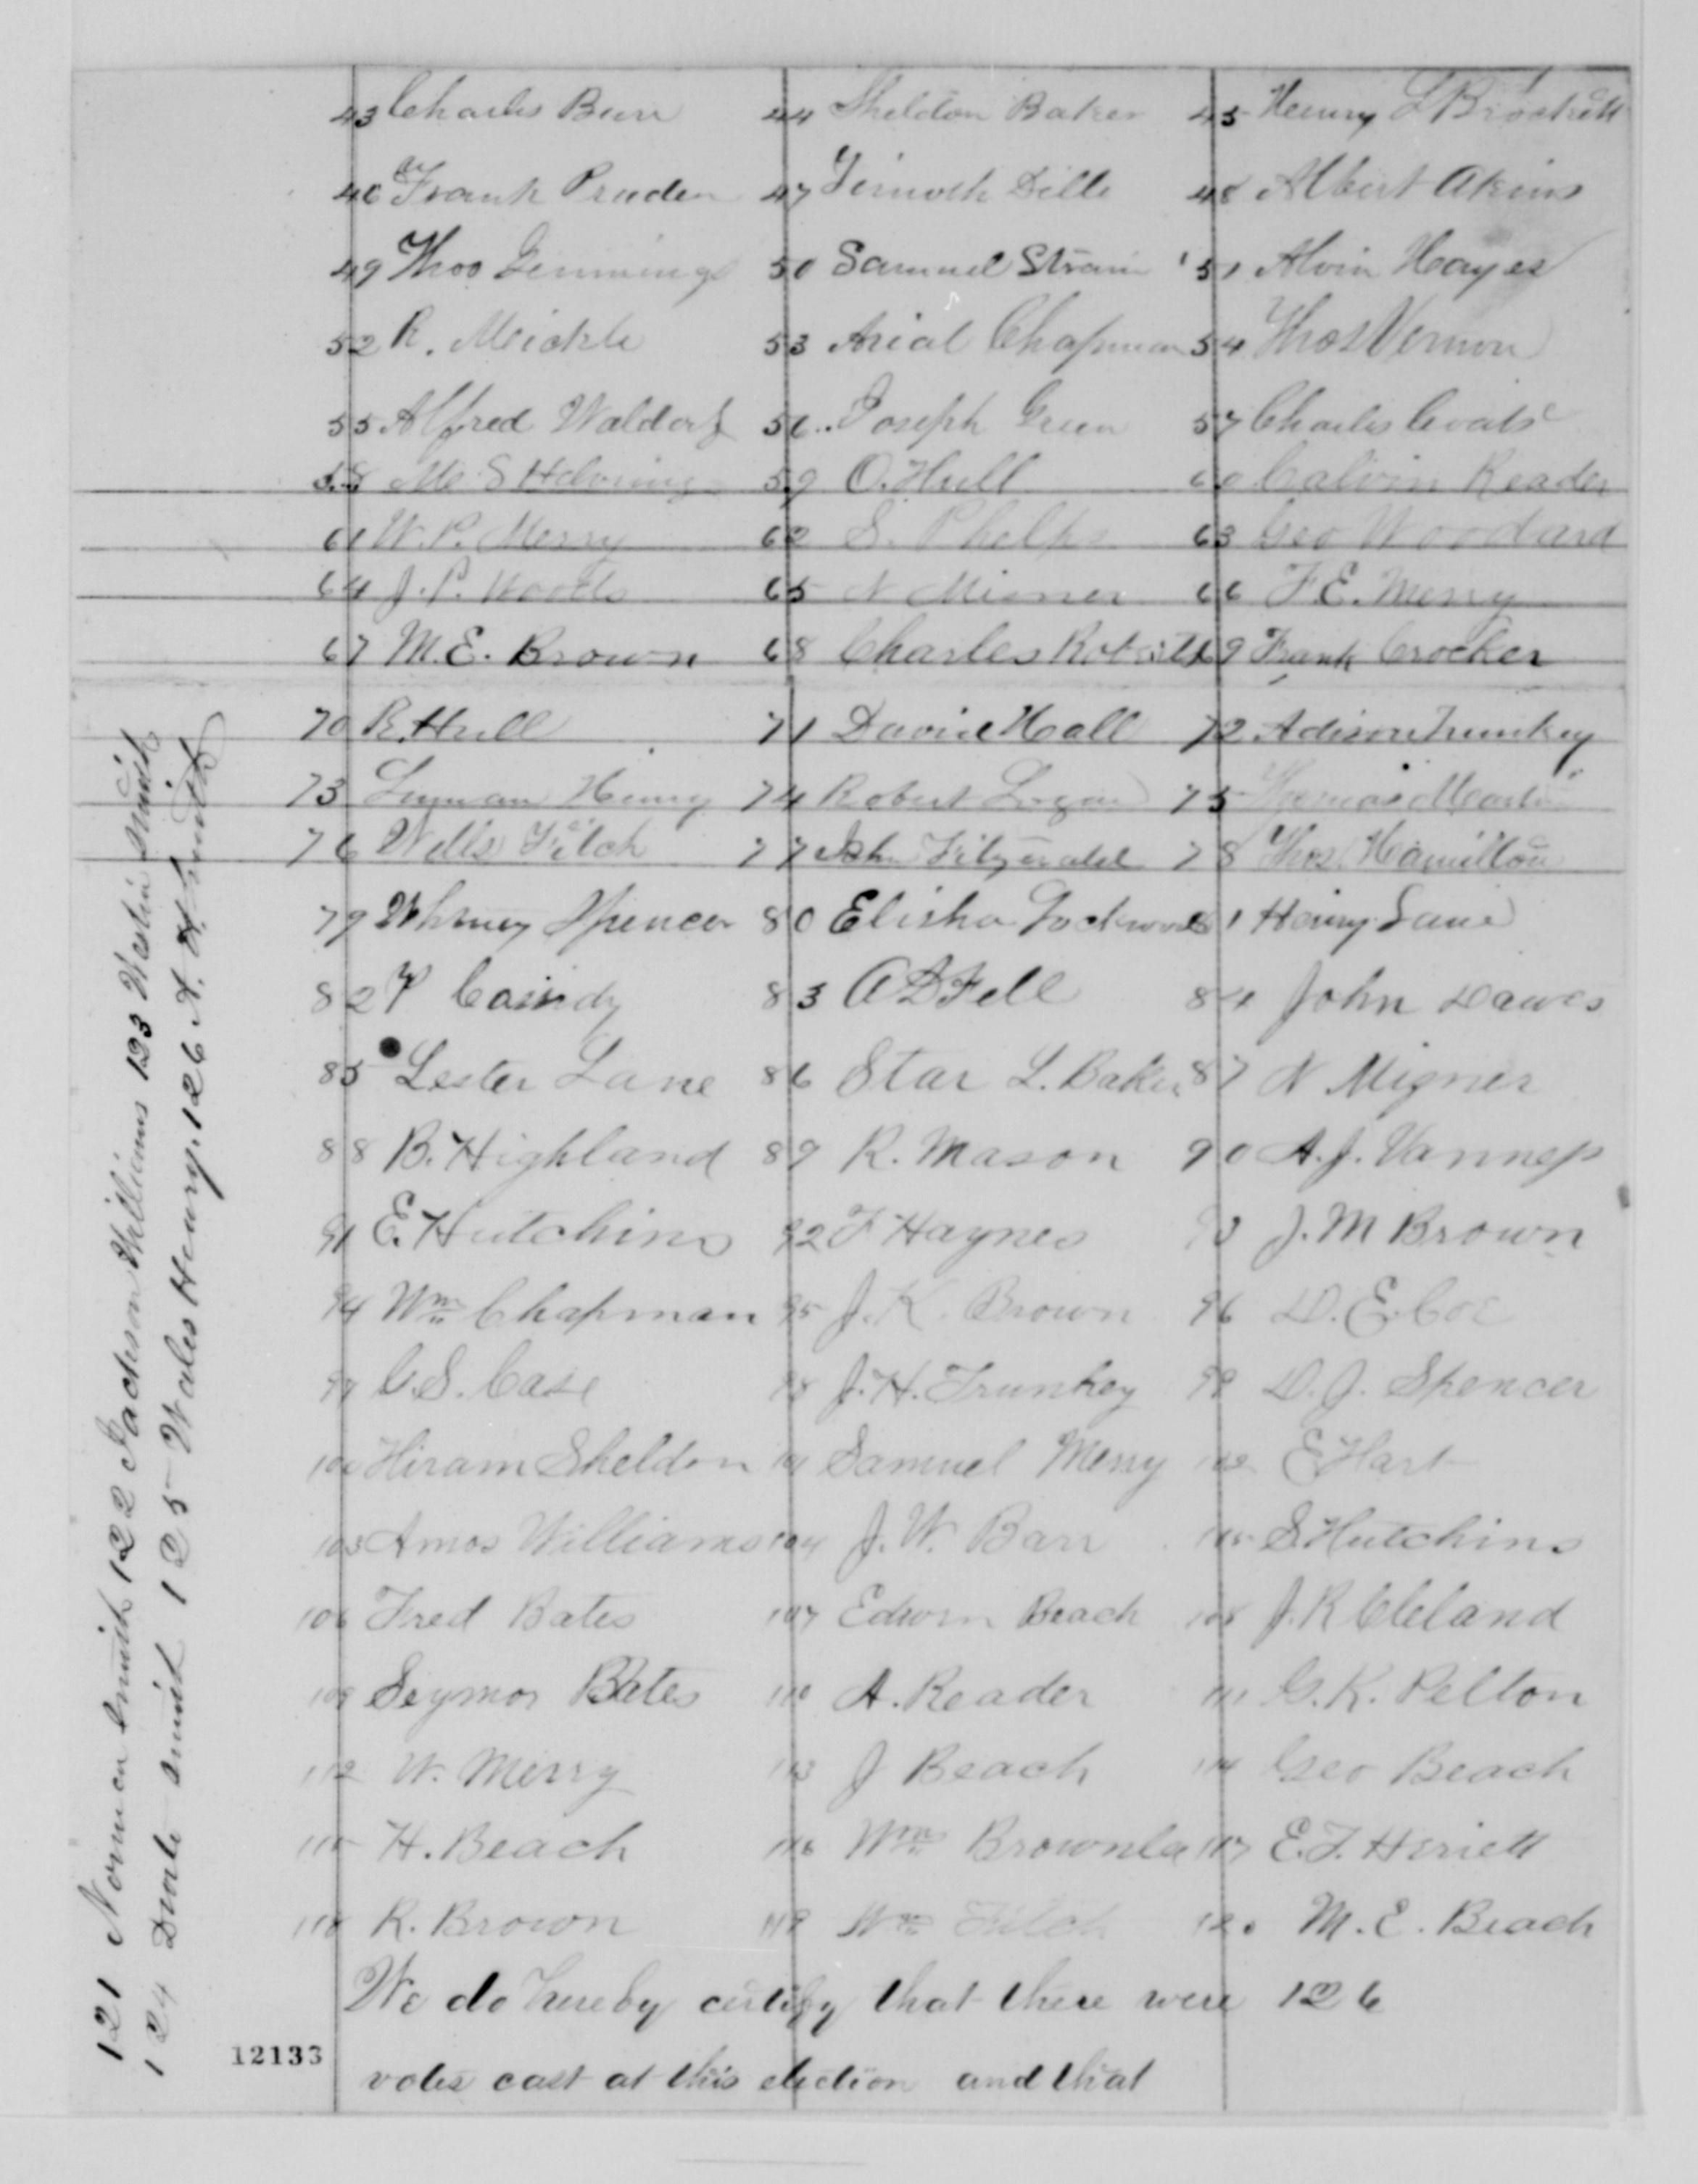 43 Charles Burr 44 Sheldon Baker 45 Henry L Brockett
46 Frank Pruden 47 Timoth Dille 48 Albert Akins
49 Thos Jennings 50 Samuel Strain 51 Alvin Hayes
52 R. Meickle 53 Arial Chapman 54 Thos Vernon
55 Alfred Waldorf 56 Joseph Green 57 Charles Coats
58 59 O. Hull 60 Calvin Reader
61 W. P. Merry 62 S. Phelps 63 Geo Woodard
64 J. P. Woods 65 N Misner 66 F. E. Merry
67 M. E. Brown 68 Charles Roberts 69 Frank Crocker
70 R. Hull 71 David Hall 72 Adison Trunkey
73 Luman Henry 74 Robert Logan 75 Thomas Martin
76 Wells Fitch 77 John Fitzgerald 78 Thos Hamilton
79 Whitney Spencer 80 Elisha Lockwood 81 Henry Lane
82 P 83 A D Fell 84 John Dawes
85 Lester Lane 86 Star L. Baker 87 N Migner
88 B. Highland 89 R. Mason 90 A. J. Vanness
91 E. Hutchins 92 F Haynes 93 J. M Brown
94 Wm Chapman 95 J. K. Brown 96 D. E. Coe
97 C. S. Case 98 J. H. Trunkey 99 D. J. Spencer
100 Hiram Sheldon 101 Samuel Merry 102 E Hart
103 Amos Williams 104 J. W. Barr 105 S Hutchins
106 Fred Bates 107 Edwin Beach 108 J. R Cleland
109 Seymor Bates 110 A. Reader 111 G. K. Pelton
112 W. Merry 113 J Beach 114 Geo Beach
115 H. Beach 116 Wm Brownlee 117 E. F.
118 R. Brown 119 Wm Fitch 120 M. E. Beach
We do hereby certify that there were 126
votes cast at this election and that
12133
121 Norman Smith 122 Jackson Williams 123 Smith
124 Smith 125 Wales Henry. 126 A. H Smith